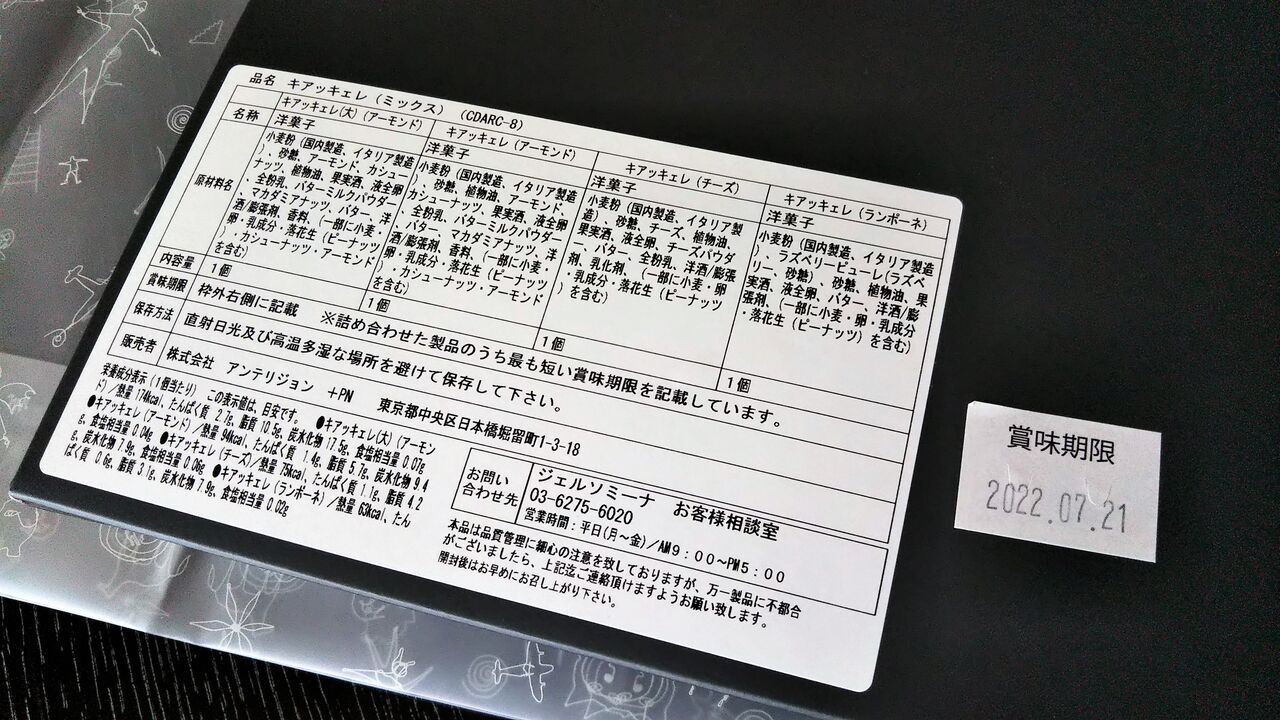 品名 キアッキェレ（ミックス） （CDARC-8）
キアッキェレ(大)（アーモンド）
キアッキェレ（アーモンド）
キアッキェレ（チーズ）
キアッキェレ（ランポーネ）
名称
洋菓子
洋菓子
洋菓子
洋菓子
原材料名
小麦粉（国内製造、イタリア製造
）、砂糖、アーモンド、カシュー
ナッツ、植物油、果実酒、液全卵
、全粉乳、バターミルクパウダー
、マカダミアナッツ、バター、洋
酒/膨張剤、香料、（一部に小麦・
卵・乳成分・落花生（ピーナッツ
）・カシューナッツ・アーモンド
を含む）
小麦粉（国内製造、イタリア製造
）、砂糖、植物油、アーモンド、
カシューナッツ、果実酒、液全卵
、全粉乳、バターミルクパウダー
、バター、マカダミアナッツ、洋
酒/膨張剤、香料、（一部に小麦・
卵・乳成分・落花生（ピーナッツ
）・カシューナッツ・アーモンド
を含む）
小麦粉（国内製造、イタリア製
造）、砂糖、チーズ、植物油、
果実酒、液全卵、チーズパウダ
ー、バター、全粉乳、洋酒/膨張
剤、乳化剤、（一部に小麦・卵
・乳成分・落花生（ピーナッツ
）を含む）
小麦粉（国内製造、イタリア製造
）、ラズベリーピューレ(ラズベ
リー、砂糖）、砂糖、植物油、果
実酒、液全卵、バター、洋酒/膨
張剤、（一部に小麦・卵・乳成分
・落花生（ピーナッツ）を含む）
内容量
1個
1個
1個
1個
賞味期限
枠外右側に記載 ※詰め合わせた製品のうち最も短い賞味期限を記載しています。
保存方法
直射日光及び高温多湿な場所を避けて保存して下さい。
販売者
株式会社 アンテリジョン +PN 東京都中央区日本橋堀留町1-3-18
栄養成分表示（1個当たり） この表示値は、目安です。 ●キアッキェレ(大)（アーモン
ド）／熱量 174kcal、たんぱく質 2.7g、脂質 10.5g、炭水化物 17.5g、食塩相当量 0.07g
●キアッキェレ（アーモンド）／熱量 94kcal、たんぱく質 1.4g、脂質 5.7g、炭水化物 9.4
g、食塩相当量 0.04g ●キアッキェレ（チーズ）／熱量 75kcal、たんぱく質 1.1g、脂質 4.2
g、炭水化物 7.9g、食塩相当量 0.06g ●キアッキェレ（ランポーネ）／熱量 63kcal、たん
ぱく質 0.6g、脂質 3.1g、炭水化物 7.9g、食塩相当量 0.02g
お問い
合わせ先
ジェルソミーナ お客様相談室
03-6275-6020
営業時間：平日(月～金)／AM9：00～PM5：00
本品は品質管理に細心の注意を致しておりますが、万一製品に不都合
がございましたら、上記迄ご連絡頂けますようお願い致します。
開封後はお早めにお召し上がり下さい。
賞味期限
2022.07.21